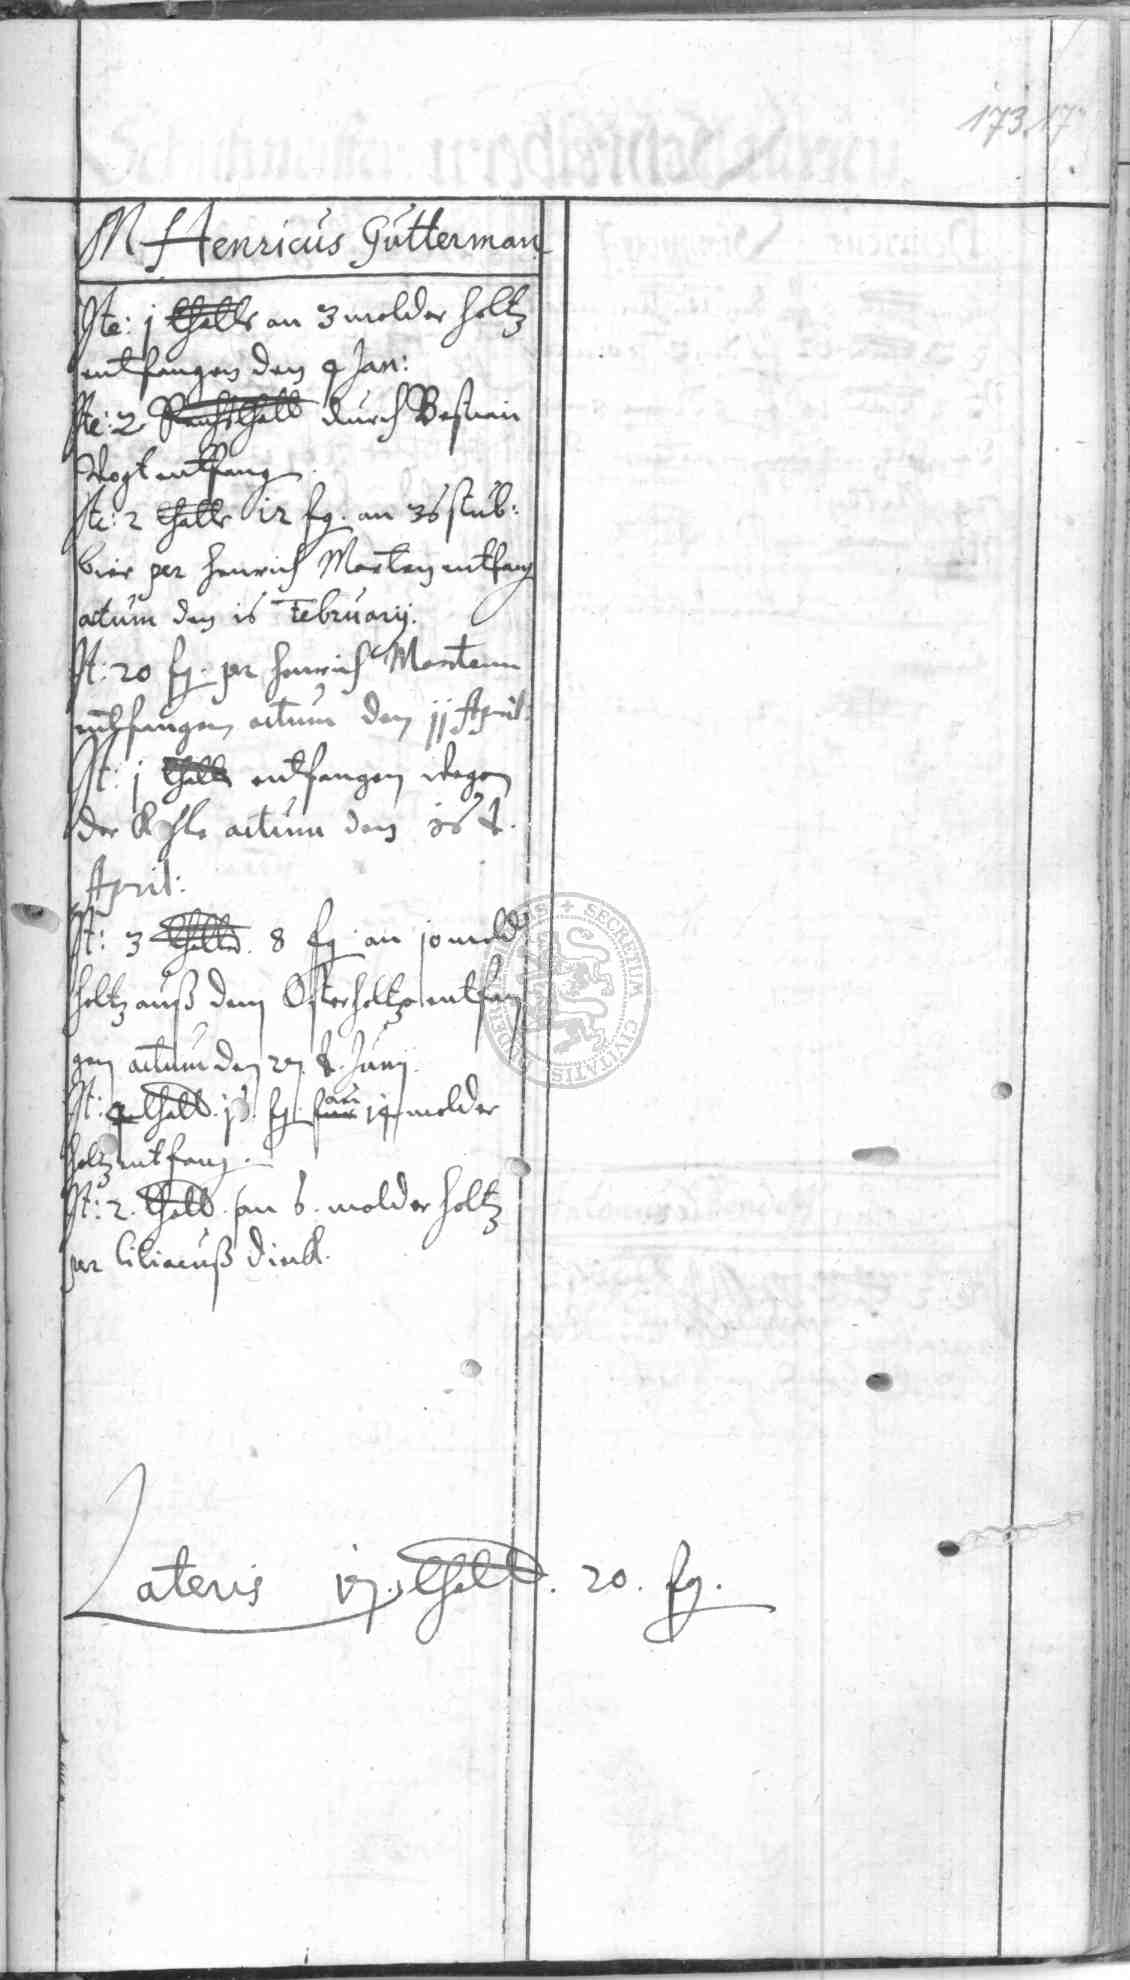 173 17
M Henricus Gütterman
Ite: j thall an 3 molder holtz
entfangen den 4 Jan:
Ite: 2 Reichsthall durch Bestian
Vogt entfang
Ite: 2 thall 12 fg. an 36 stüb:
bier per Henrich Marten entfang
actum den 16 Februarij.
It: 20 fg. per Henrich Martenn
entfangen actum den jj April:
It: j thall entfangen wegen
der actum den 16 t.
April:
It: 3 thall. 8 fg an jo mold
holtz auß dem Osterholtz entfan
gen actum den 27 t. Junij
It: 4 thall. fg. an j4 molder
holtz entfang.
It: 2. thall. an 6. molder holtz
per Ciliacuß Dirck.
Lateris 17. thall. 20. fg.
SECRETUM CIVITATIS